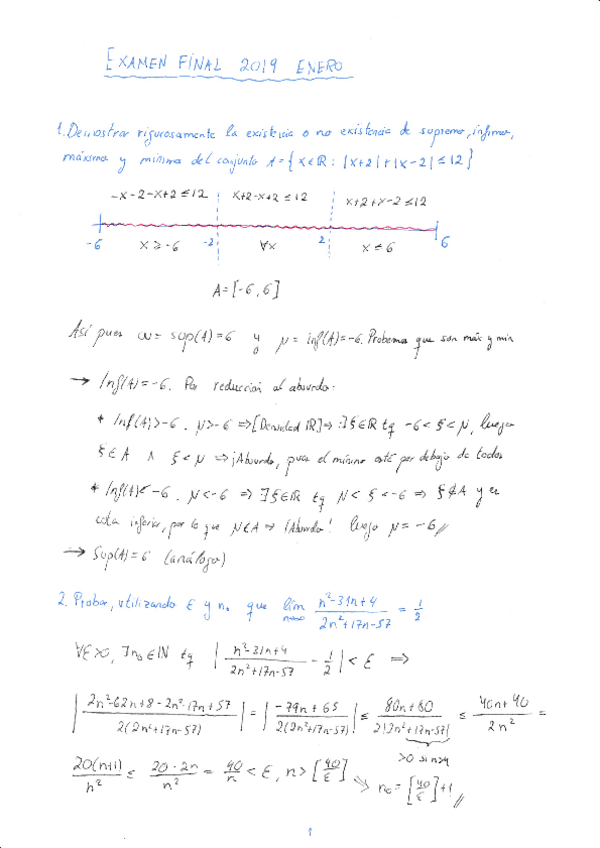 EXAMEN FINAL 2019 ENERO
1. Demostrar rigurosamente la existencia o no existencia de supremo, ínfimo,
máximo y mínimo del conjunto A={x∈ℝ: |x+2|+|x-2|≤12}
-x-2-x+2≤12 x+2-x+2≤12 x+2+x-2≤12
-6 x≥-6 -2 ∀x 2 x≤6 6
A=[-6,6]
Así pues ω= sup(A)=6 y μ= inf(A)=-6. Probemos que son máx y mín
→ Inf(A)=-6. Por reducción al absurdo.
* Inf(A)>-6. μ>-6 ⇒[Densidad ℝ]⇒ ∃ξ∈ℝ tq -6<ξ<μ, luego
ξ∈A ∧ ξ<μ ⇒ ¡Absurdo, pues el mínimo está por debajo de todos
* Inf(A)<-6. μ<-6 ⇒ ∃ξ∈ℝ tq μ<ξ<-6 ⇒ ξ∉A y es
cota inferior, por lo que μ∉A ⇒ ¡Absurdo! luego μ=-6//
→ Sup(A)=6 (análogo)
2. Probar, utilizando ε y n₀ que lim n→∞ (n²-31n+4)/(2n²+17n-57) = 1/2
∀ε>0, ∃n₀∈ℕ tq |(n²-31n+4)/(2n²+17n-57) - 1/2| < ε ⇒
|(2n²-62n+8-2n²-17n+57)/(2(2n²+17n-57))| = |(-79n+65)/(2(2n²+17n-57))| ≤ (80n+80)/(2|2n²+17n-57|) ≤ (40n+40)/(2n²) =
>0 si n>4
20(n+1)/n² ≤ 20·2n/n² = 40/n < ε, n>[40/ε] ⇒ n₀=[40/ε]+1//
1